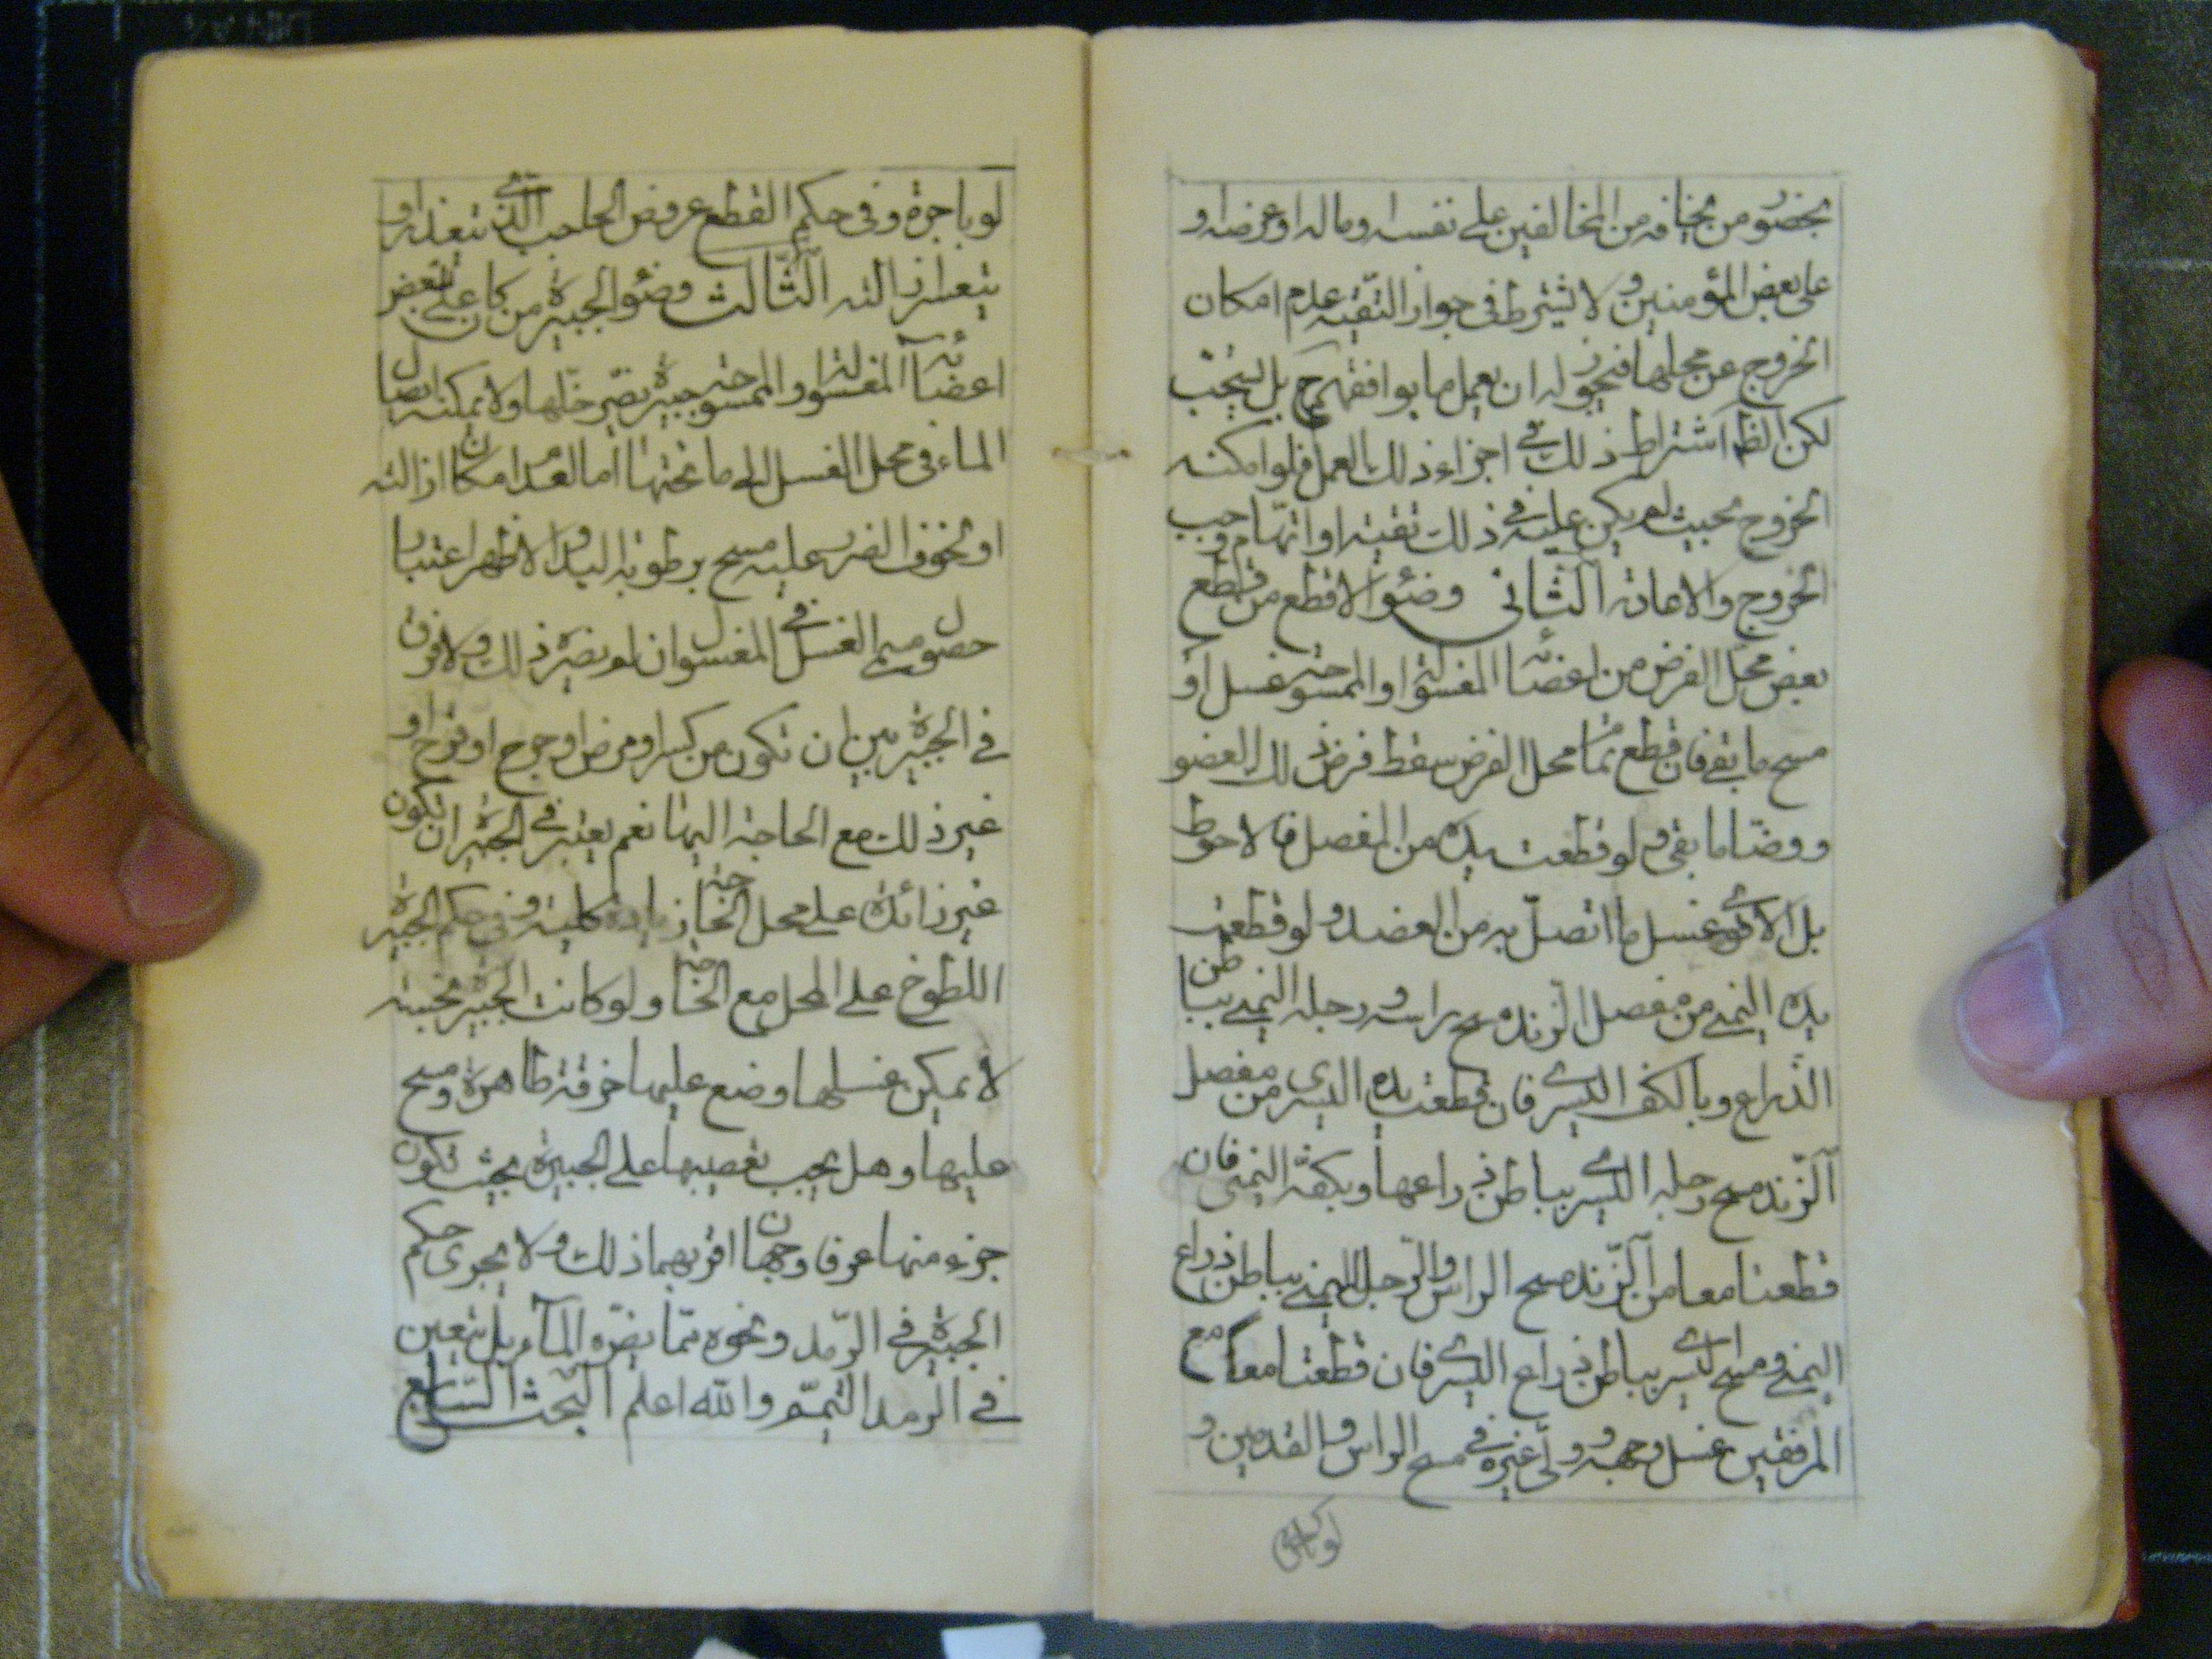 بحضور من يخافه من المخالفين على نفسه وماله او عرضه او
على بعض المؤمنين ولا يشترط في جواز التقيه عدم امكان
الخروج عن محلها فيجوز له ان يعمل ما يوافقهم ح بل يستحب
لكن الظ اشتراط ذلك في اجزاء ذلك العمل فلو امكنه
الخروج بحيث لم يكن عليه في ذلك تقيه او اتهام وجب
الخروج والاعادة الثاني وضوء الاقطع من قطع
بعض محل الفرض من اعضائه المغسولة او الممسوحة غسل او
مسح ما بقى فان قطع تمام محل الفرض سقط فرض ذلك العضو
ووضّأ ما بقى ولو قطعت يده من المفصل فالاحوط
بل الاقوى غسل ما اتصل به من العضد ولو قطعت
يده اليمنى من مفصل الزند مسح راسه ورجله اليمنى بباطن
الذراع وبالكف اليسرى فان قطعت يده اليسرى من مفصل
الزند مسح رجله اليسرى بباطن ذراعها وبكفه اليمنى فان
قطعتا معا من الزند مسح الراس والرجل اليمنى بباطن ذراع
اليمنى ومسح اليسرى بباطن ذراع اليسرى فان قطعتا معا مع
المرفقين غسل وجهه وولى غيره في مسح الراس والقدمين و
لو باجرة
لو باجرة وفي حكم القطع عروض الحاجب الذي يتعذر او
يتعسر ازالته الثالث وضوء الجبيرة من كان على بعض
اعضائه المغسولة او الممسوحة جبيرة يضر حلها ولا يمكنه ايصال
الماء في محل الغسل الى ما تحتها اما لعدم امكان ازالته
او لخوف الضرر عليه مسح برطوبة اليد والاظهر اعتبار
حصول مسمى الغسل في المغسول ان لم يضره ذلك ولا فرق
في الجبيرة بين ان تكون من كسر او مرض او جرح او قرح او
غير ذلك مع الحاجة اليها نعم يعتبر في الجبيرة ان تكون
غير زائدة على محل الحاجة زيادة كلية وفي حكم الجبيرة
اللطوخ على المحل مع الحاجة ولو كانت الجبيرة نجسة
لا يمكن غسلها وضع عليها خرقة طاهرة ومسح
عليها وهل يجب تعصيبها على الجبيرة بحيث تكون
جزء منها عرفا وجهان اقربهما ذلك ولا يجرى حكم
الجبيرة في الرمد ونحوه مما يضره الماء بل يتعين
في الرمد التيمم والله اعلم البحث السابع